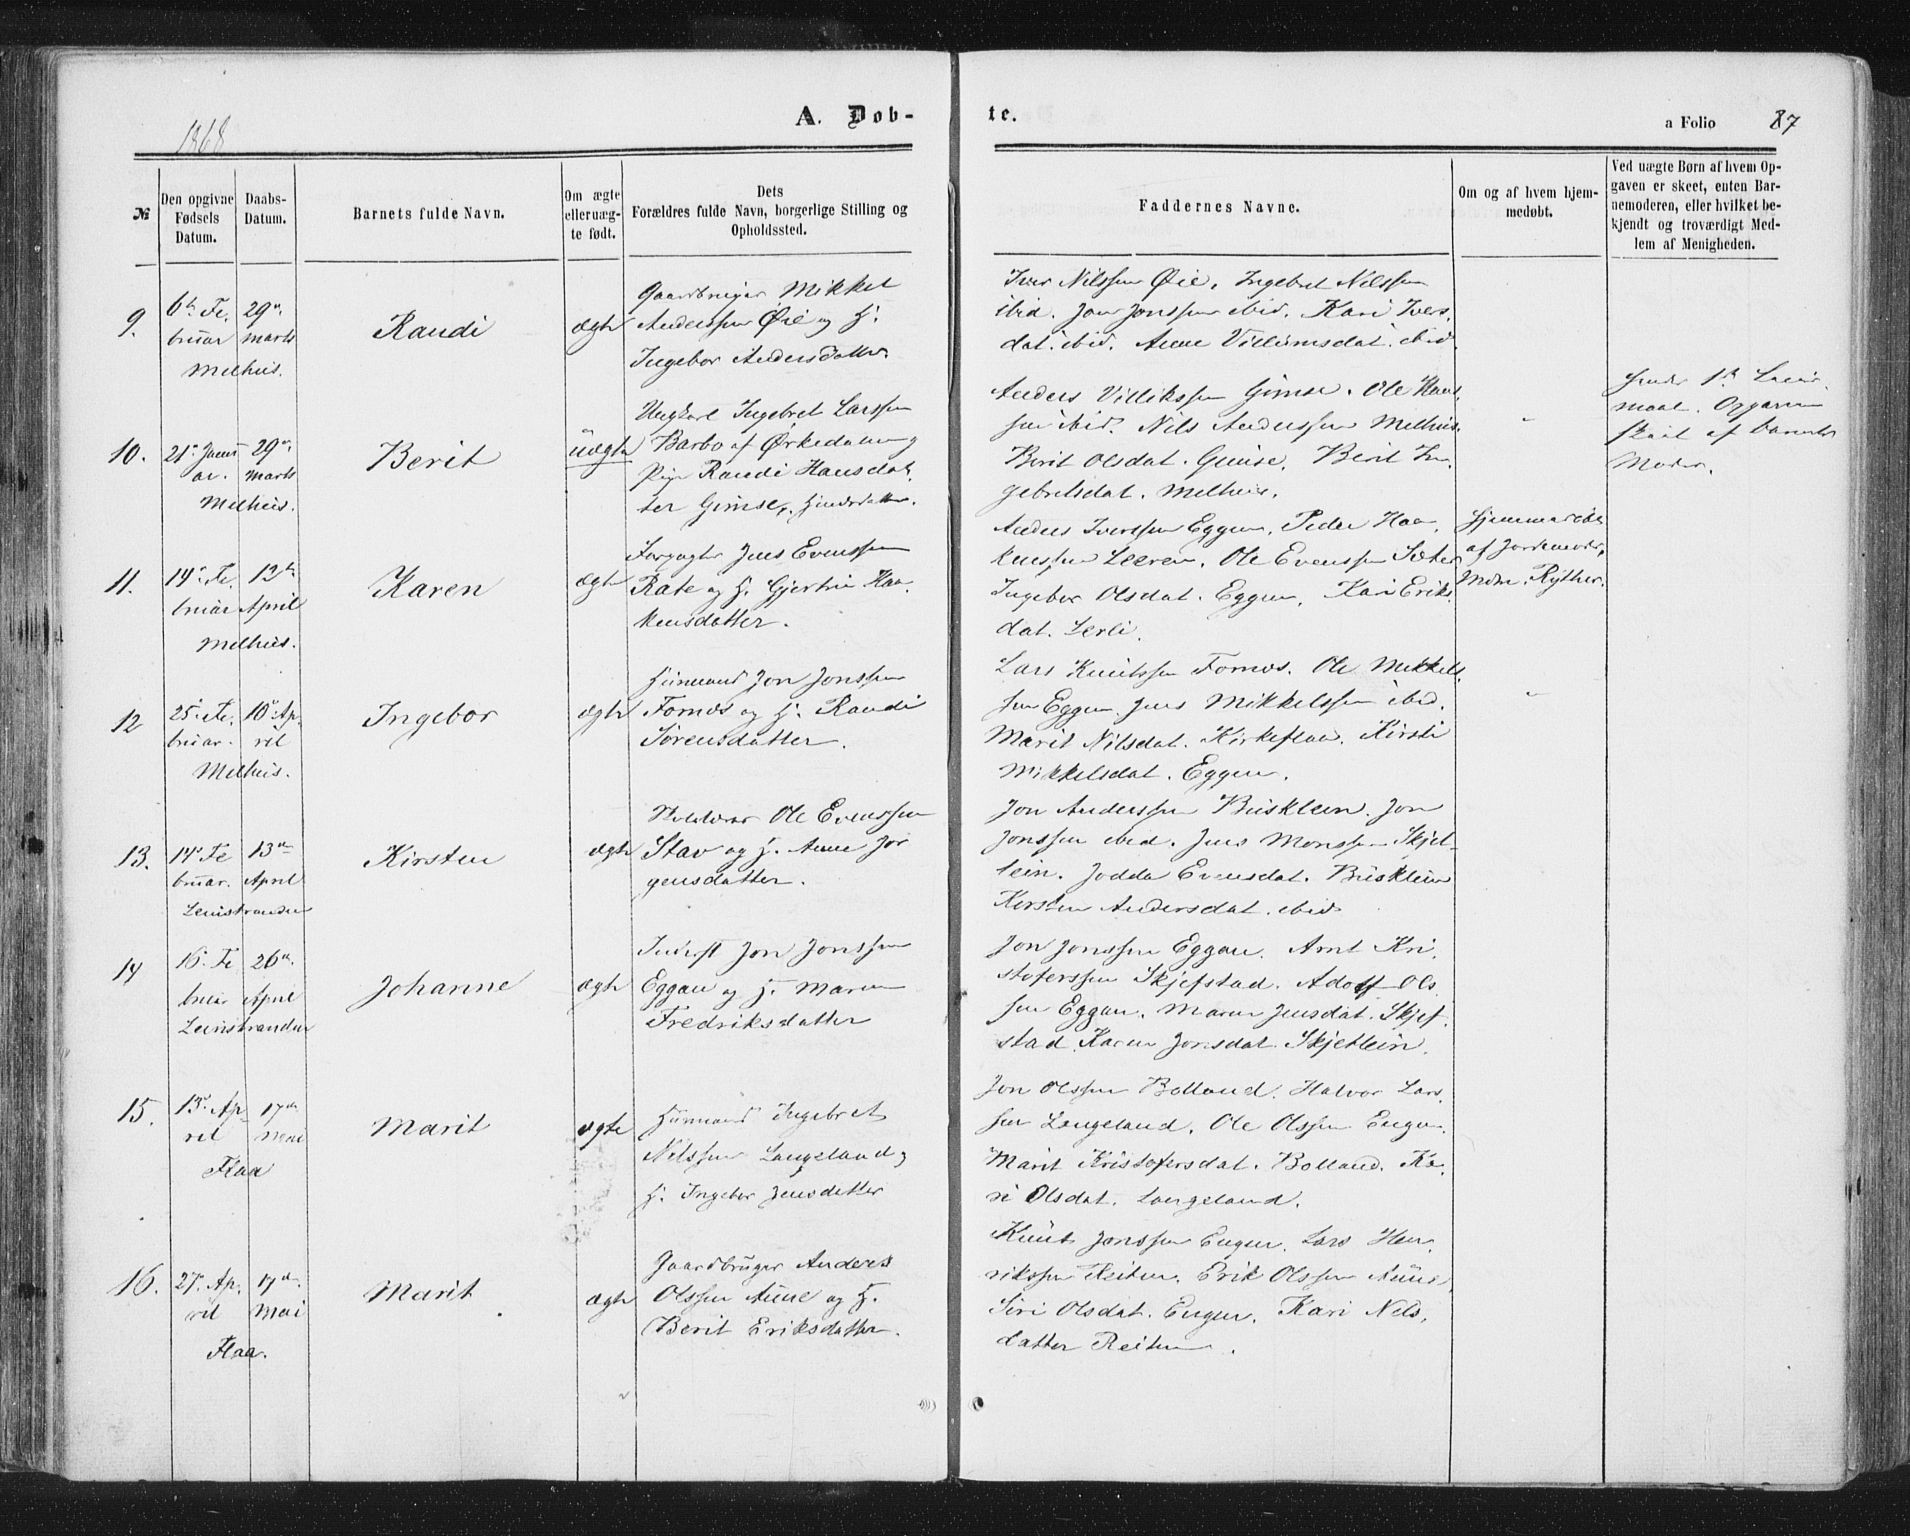 1868
A. Døb-
te.
a Folio
87
№
Den opgivne Fødsels Datum.
Daabs-Datum.
Barnets fulde Navn.
Om ægte eller uæg-te født.
Dets Forældres fulde Navn, borgerlige Stilling og Opholdssted.
Faddernes Navne.
Om og af hvem hjem-medøbt.
Ved uægte Børn af hvem Op-gaven er skeet, enten Bar-nemoderen, eller hvilket be-kjendt og troværdigt Med-lem af Menigheden.
9.
6te Fe.
bruar
Melhus.
29de
marts
Randi
ægte
Gaardbruger Mikkel
Anderssen Øie og H.
Ingebor Andersdatter
Iver Nilssen Øie, Ingebret Nilssen
ibid. Jon Jonssen ibid. Kari Ivers.
dat. ibid. Anne Villumsdat. ibid.
10.
21de Janu
ar.
Melhus.
29de
marts
Berit
uægte
Ungkarl Ingebret Larssen
Barbo af Ørkedalen og
Pige Randi Hansdat
ter Gimse,
Anders Villikssen Gimse. Ole Hans
sen ibid. Nils Anderssen Melhus.
Berit Olsdat. Gimse. Berit In
gebretsdat. Melhus.
Opgaven
skeet af Barnets
Moder.
11.
14de Fe.
bruar
Melhus.
12te
April
Karen
ægte
Forpagter Jens Evenssen
Rate og H. Gjertru Haa.
kensdatter.
Anders Iverssen Eggen, Peder Haa.
kenssen Leeren, Ole Evenssen Sæter
Ingebor Olsdat. Eggen, Kari Eriks
dat. Lerli.
Hjemmedøbt
af Jordemoder,
Mdm. Rÿther.
12
25de Fe.
bruar.
Melhus.
10de Ap.
ril
Ingebor
ægte
Huusmand Jon Jonssen
Fornæs og H. Randi
Sørensdatter.
Lars Knutssen Fornæs. Ole Mikkels
sen Eggen. Jens Mikkelssen ibid.
Marit Nilsdat. Kirkeflaa. Kirsti
Mikkelsdat. Eggen.
13.
14de Fe
bruar.
Leinstranden
13de
April
Kirsten
ægte
Ole Evenssen
Stav og H. Anne Jør
gensdatter.
Jon Anderssen Busklein. Jon
Jonssen ibid. Jens Monssen Skjet-
lein. Jodda Evensdat. Busklein
Kirsten Andersdat. ibid
14
16de Fe
bruar
Leinstranden
26de
April
Johanne
ægte
Inderst Jon Jonssen
Eggan og H. Maren
Fredriksdatter
Jon Jonssen Eggan. Arnt Kri.
stoferssen Skjefstad. Adolf Ols
sen Eggan. Maren Jensdat. Skjef.
stad. Karen Jonsdat. Skjetlein.
15.
13de Ap
ril
Flaa
17de
Mai
Marit
ægte
Huusmand Ingebret
Nilssen Langeland og
H. Ingebor Jensdatter
Jon Olssen Bolland. Halvor Lars.
sen Langeland. Ole Olssen Engen.
Marit Kristofersdat. Bolland. Ka.
ri Olsdat. Langeland.
16.
27de Ap.
ril
Flaa.
17de
Mai
Marit
ægte
Gaardbruger Anders
Olssen Aune og H.
Berit Eriksdatter.
Knut Jonssen Engen. Lars Hen.
rikssen Reiten. Erik Olssen Aune.
Siri Olsdat. Engen. Kari Nels.
datter Reiten.